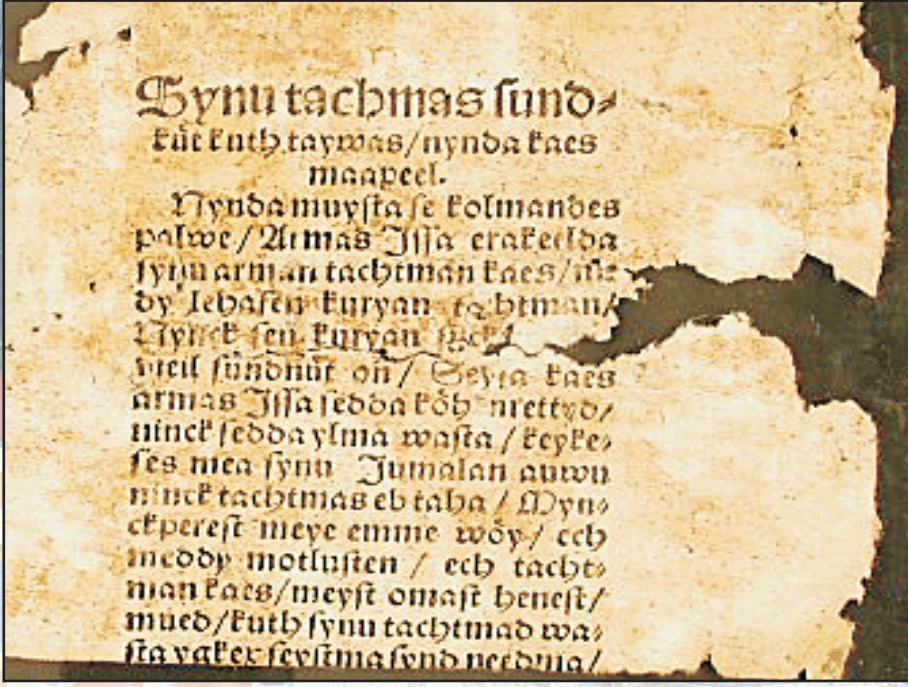 Synu tachmas sund⸗
küt kuth taywas/nynda kaes
maapeel.
Nynda muysta se kolmandes
palwe/Armas Jssa erakeelda
synu arman tachtman kaes/me
dy lehasen kuryan tachtman/
Nynck sen kuryan
weil sündnüt on/ Seyta kaes
armas Jssa sedda köh mettyd/
ninck sedda ylma wasta/keyke⸗
ses mea synu Jumalan auwu
ninck tachtmas eb taha/Myn⸗
ckperest meye emme wöy/ech
meddy motlusten / ech tacht⸗
man kaes/meyst omast henest/
mued/kuth synu tachtmad wa⸗
sta